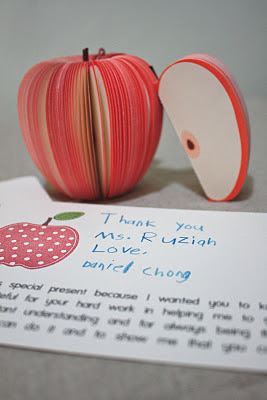 Thank you
Ms. Ruziah
Love,
Daniel Chong
s special present because I wanted you to k
eful for your hard work in helping me to
tant understanding and for always being t
an do it and to show me that you c